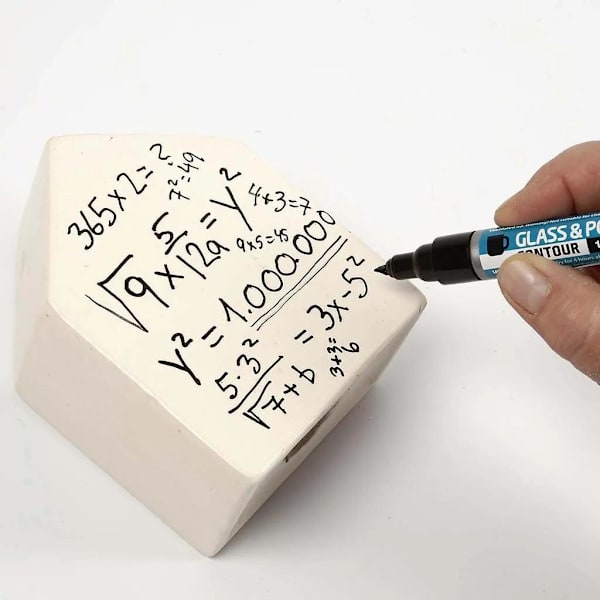 365x2=?
7²=49
√9 x 5/12a = y²
4+3=7
9x5=45
y² = 1.000.000
5·3²/√7+b = 3x-5²
3+3=6
GLASS & PO
CONTOUR